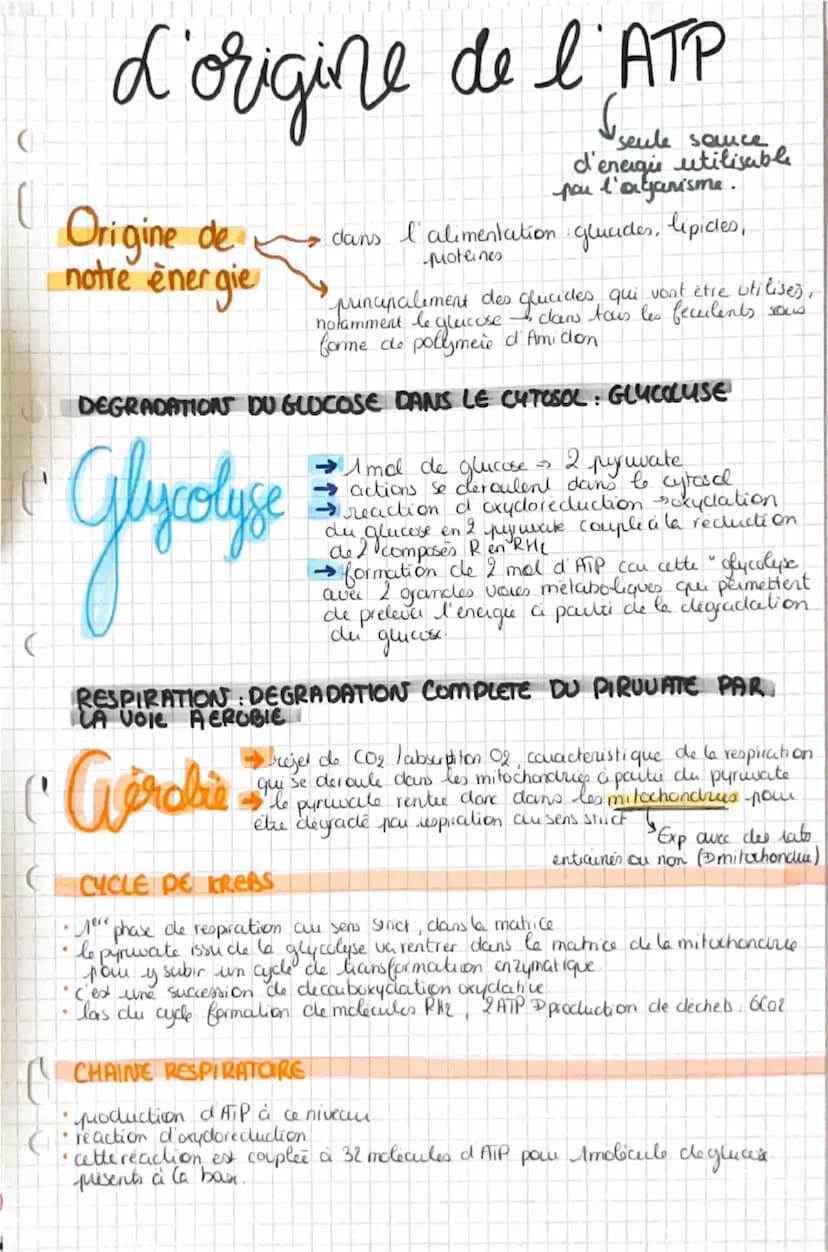 L'origine de l'ATP
seule source
d'energie utilisable
par l'organisme.
Origine de
notre ènergie
dans l'alimentation : glucides, lipides,
proteines
principalement des glucides, qui vont être utilisés,
notamment le glucose → dans tous les feculents sous
forme de polymere d'Amidon
DEGRADATION DU GLUCOSE DANS LE CYTOSOL : GLYCOLYSE
Glycolyse
→ 1 mol de glucose → 2 pyruvate
→ actions se deroulent dans le cytosol
→ reaction d'oxydoreduction → oxydation
du glucose en 2 pyruvate couplé à la reduction
de 2 composés R en RH2
→ formation de 2 mol d'ATP car cette "glycolyse
avec 2 grandes voies metaboliques qui permettent
de prelever l'energie à partir de la degradation
du glucose.
RESPIRATION : DEGRADATION COMPLETE DU PIRUVATE PAR
LA VOIE AEROBIE
Aérobie
→ rejet de CO2 / absorption O2, caracteristique de la respiration
qui se deroule dans les mitochondries à partir du pyruvate
→ le pyruvate rentre donc dans les mitochondries pour
être dégradé par respiration au sens strict
Exp avec des rats
entrainés ou non (mitochondrie)
CYCLE DE KREBS
• 1ere phase de respiration au sens strict, dans la matrice
• le pyruvate issu de la glycolyse va rentrer dans la matrice de la mitochondrie
pour y subir un cycle de transformation enzymatique
• c'est une succession de decarboxydation oxydative
• lors du cycle formation de molécules RH2, 2 ATP production de déchets : 6CO2
CHAINE RESPIRATOIRE
• production d'ATP à ce niveau
• reaction d'oxydoreduction
• cette reaction est couplée à 32 molécules d'ATP pour 1 molécule de glucose
présents à la base.